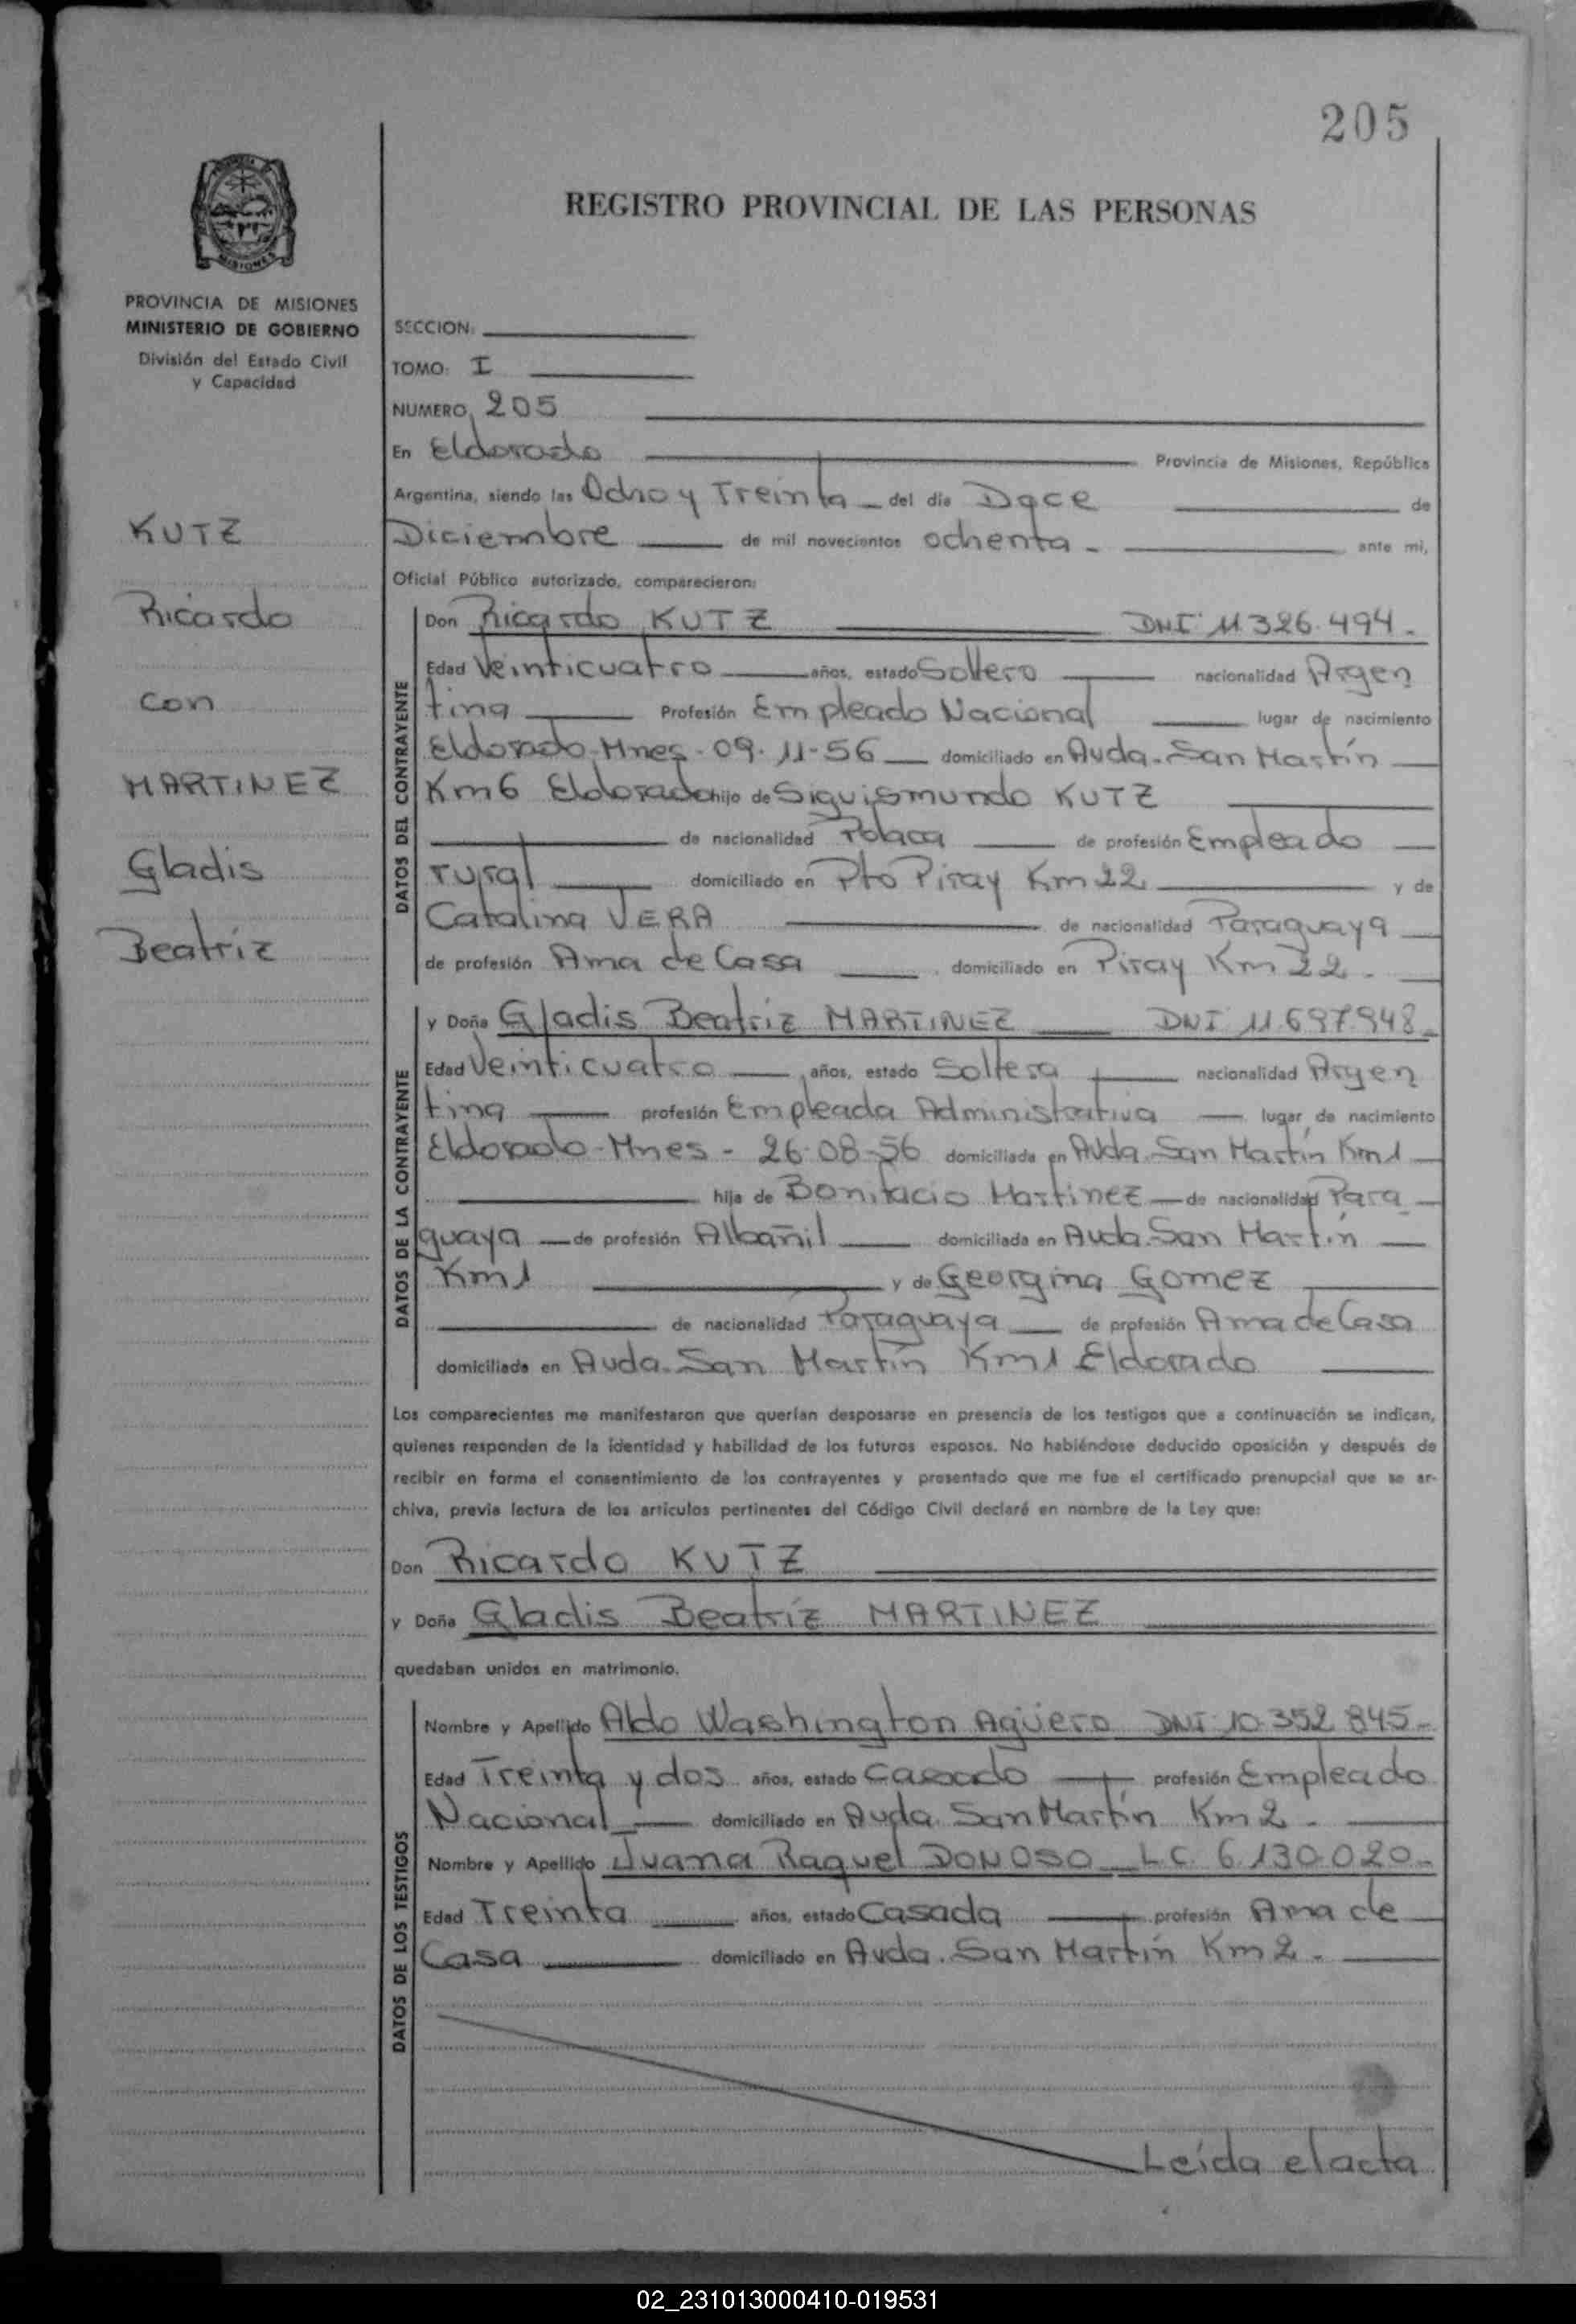 205
REGISTRO PROVINCIAL DE LAS PERSONAS
MISIONES
PROVINCIA DE MISIONES
MINISTERIO DE GOBIERNO
División del Estado Civil
y Capacidad
KUTZ
Ricardo
con
MARTINEZ
Gladis
Beatriz
SECCION:
TOMO: I
NUMERO, 205
En Eldorado Provincia de Misiones, República
Argentina, siendo las Ocho y Treinta del día Doce de
Diciembre de mil novecientos ochenta - ante mi,
Oficial Público autorizado, comparecieron:
DATOS DEL CONTRAYENTE
Don Ricardo KUTZ DNI 11.326.494.
Edad Veinticuatro años, estado Soltero nacionalidad Argen
tina Profesión Empleado Nacional lugar de nacimiento
Eldorado-Mnes-09-11-56 domiciliado en Avda. San Martín
Km6 Eldorado hijo de Siguismundo KUTZ
de nacionalidad Polaca de profesión Empleado
rural domiciliado en Pto Piray Km 22 y de
Catalina VERA de nacionalidad Paraguaya
de profesión Ama de Casa domiciliado en Piray Km 22.
DATOS DE LA CONTRAYENTE
y Doña Gladis Beatriz MARTINEZ DNI 11.697.948.
Edad Veinticuatro años, estado Soltera nacionalidad Argen
tina profesión Empleada Administrativa lugar de nacimiento
Eldorado-Mnes - 26-08-56 domiciliada en Avda. San Martín Km1
hija de Bonifacio Martinez de nacionalidad Para
guaya de profesión Albañil domiciliada en Avda. San Martín
Km1 y de Georgina Gomez
de nacionalidad Paraguaya de profesión Ama de Casa
domiciliada en Avda. San Martín Km1 Eldorado
Los comparecientes me manifestaron que querían desposarse en presencia de los testigos que a continuación se indican,
quienes responden de la identidad y habilidad de los futuros esposos. No habiéndose deducido oposición y después de
recibir en forma el consentimiento de los contrayentes y presentado que me fue el certificado prenupcial que se ar-
chiva, previa lectura de los artículos pertinentes del Código Civil declaré en nombre de la Ley que:
Don Ricardo KUTZ
y Doña Gladis Beatriz MARTINEZ
quedaban unidos en matrimonio.
DATOS DE LOS TESTIGOS
Nombre y Apellido Aldo Washington Agüero DNI 10.352.845.-
Edad Treinta y dos años, estado Casado profesión Empleado
Nacional domiciliado en Avda. San Martín Km 2.
Nombre y Apellido Juana Raquel DONOSO L.C. 6.130.020.-
Edad Treinta años, estado Casada profesión Ama de
Casa domiciliado en Avda. San Martín Km 2.
Leída el acta
02_231013000410-019531